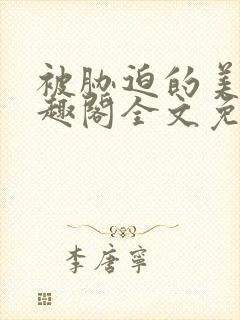 被胁迫的美
趣阁全文免
李唐宁